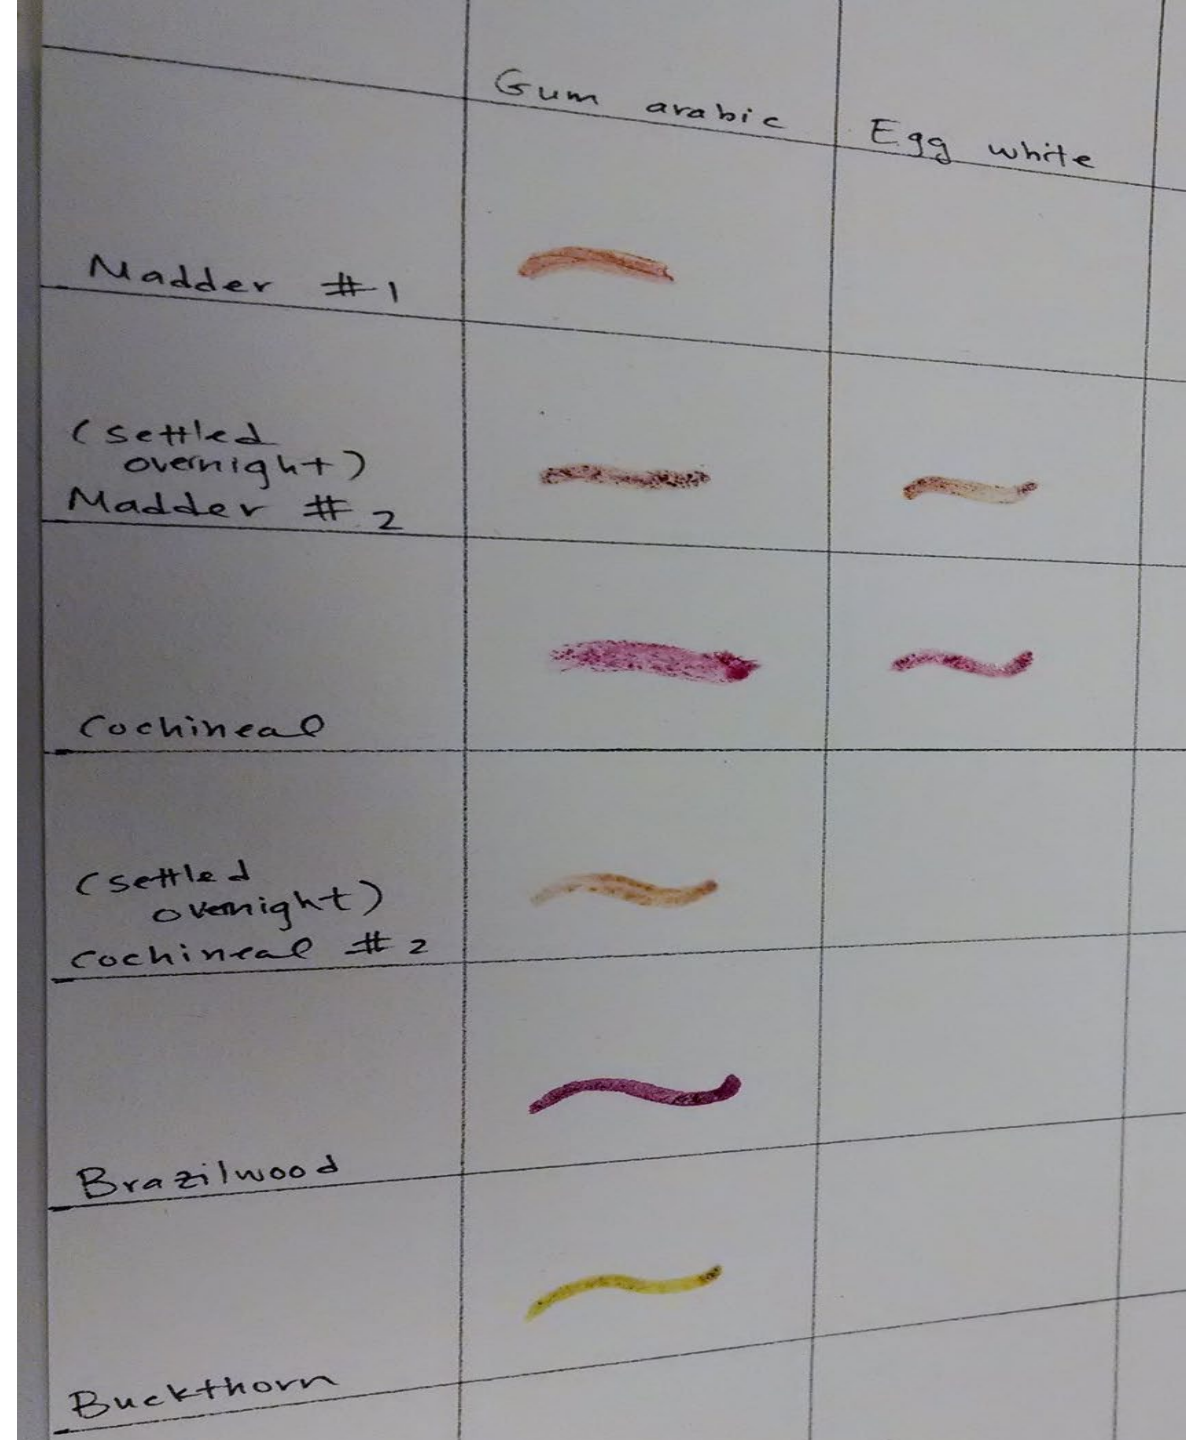 Gum arabic
Egg white
Madder #1
(settled
overnight)
Madder #2
Cochineal
(settled
overnight)
Cochineal #2
Brazilwood
Buckthorn